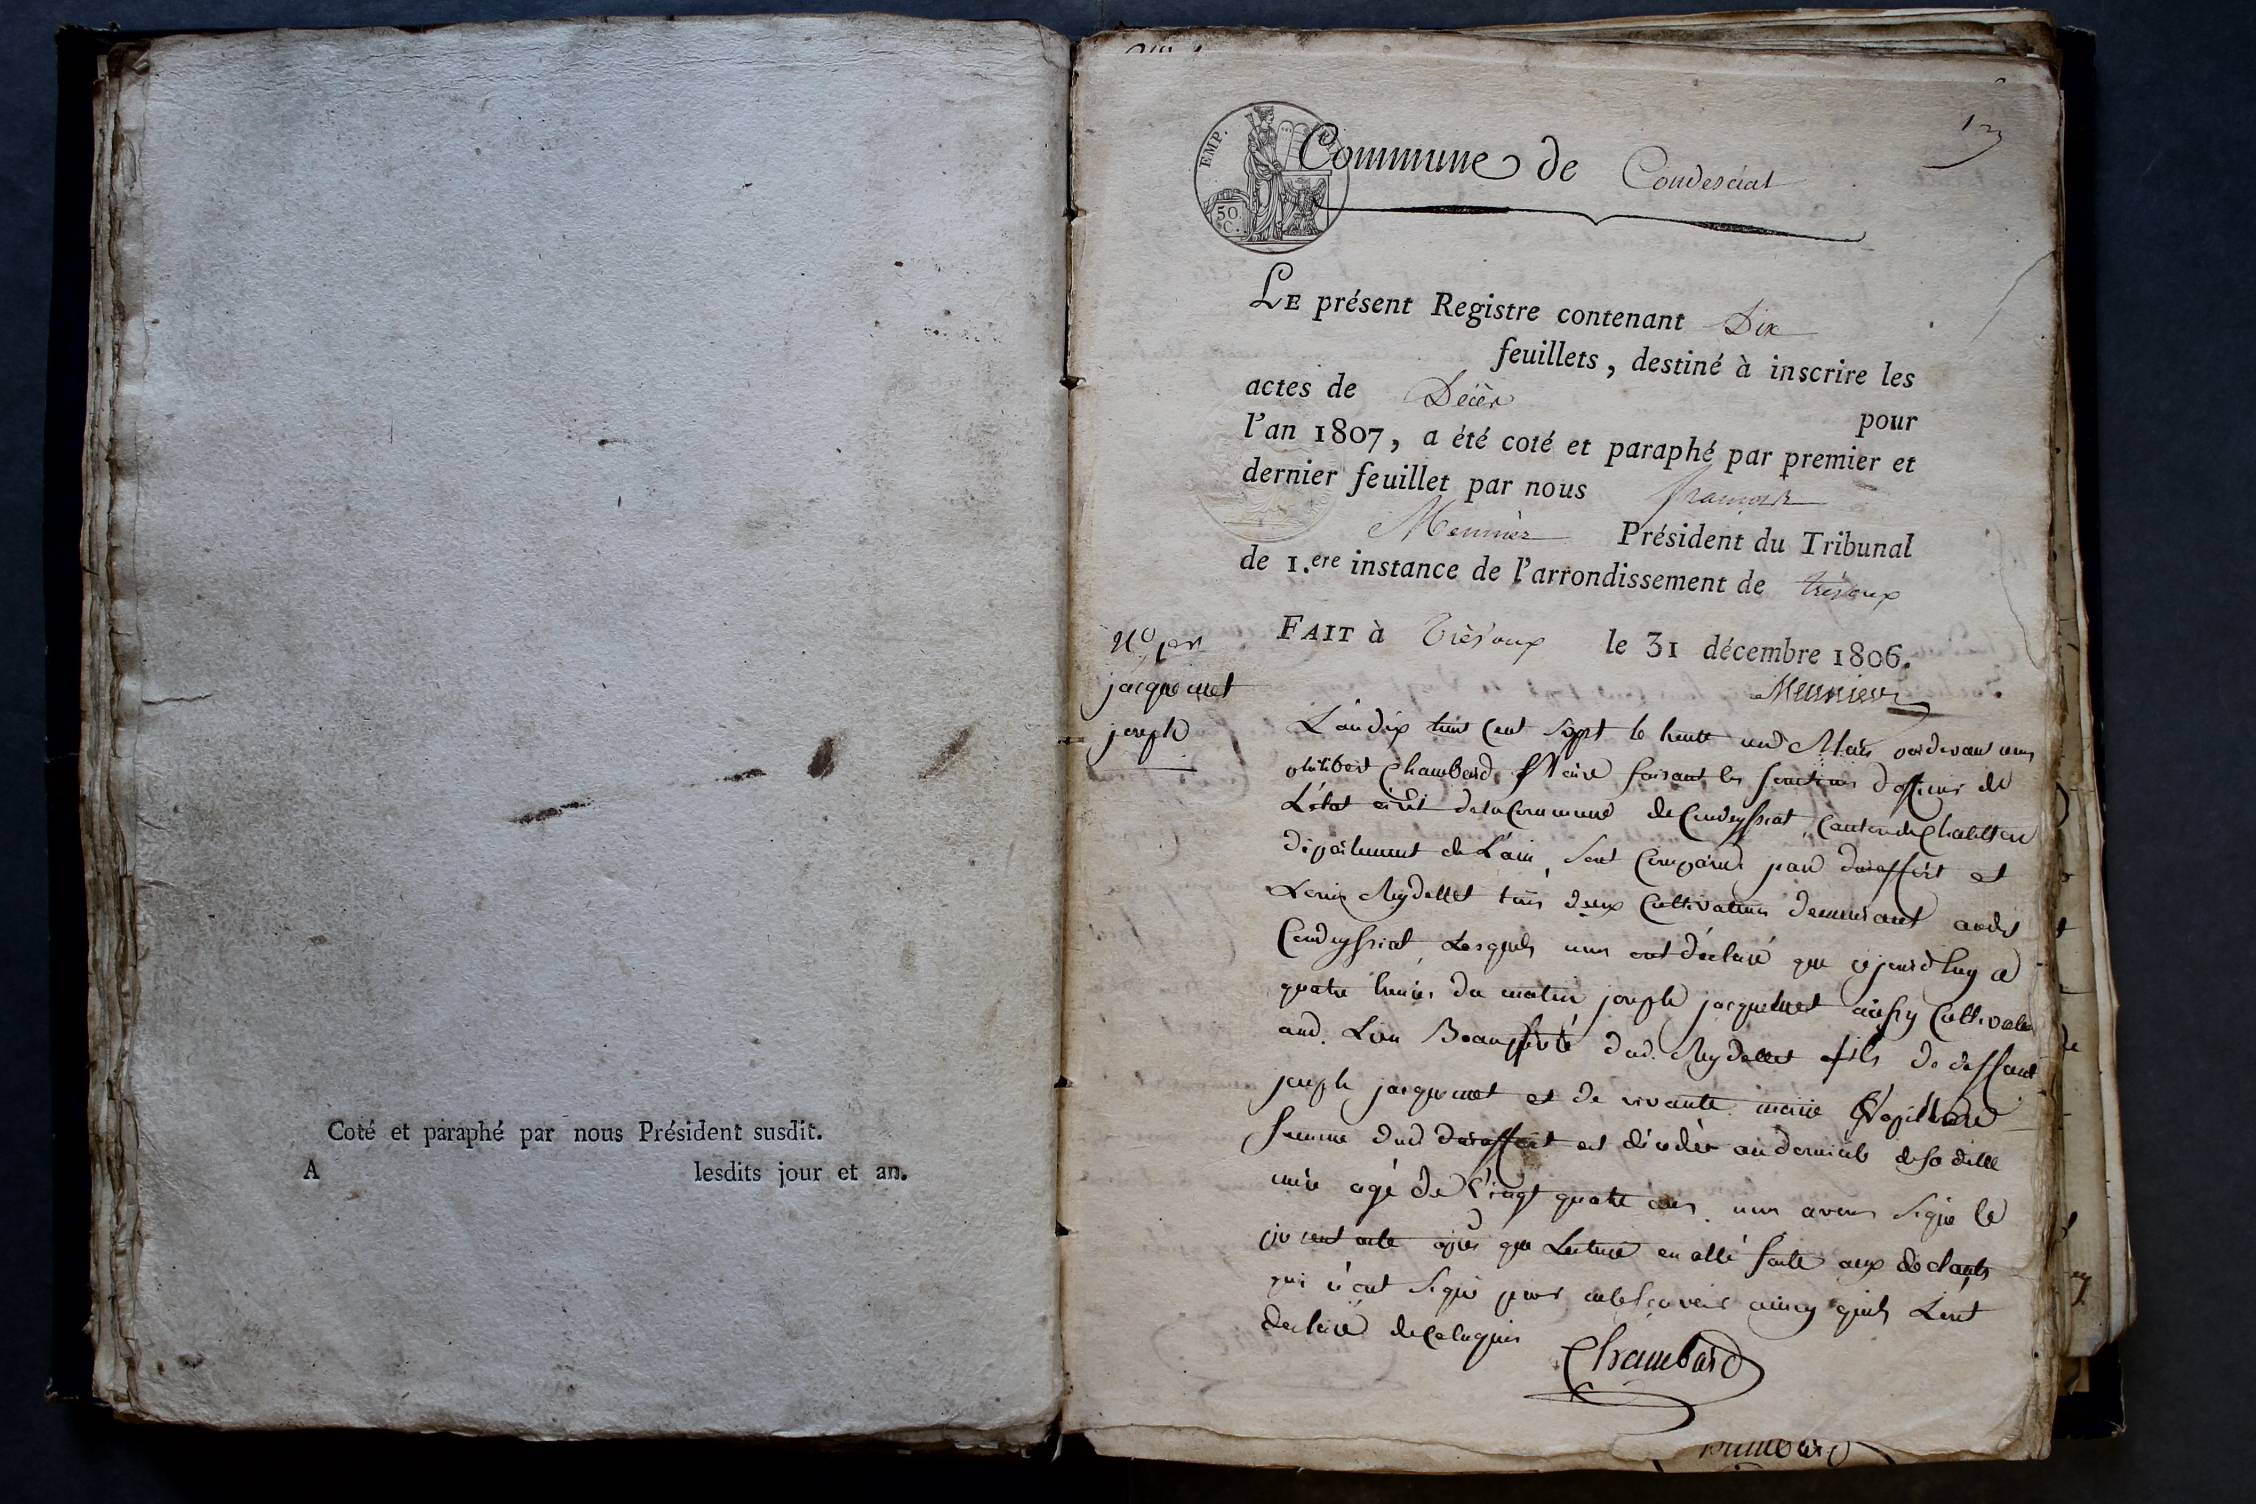 Coté et paraphé par nous Président susdit.
A lesdits jour et an.
EMP.
50
C.
Commune de Condesciat
LE présent Registre contenant Dix
feuillets, destiné à inscrire les
actes de Décès pour
l'an 1807, a été coté et paraphé par premier et
dernier feuillet par nous françois
Meunier Président du Tribunal
de 1.ere instance de l'arrondissement de trévoux
FAIT à Trévoux le 31 décembre 1806.
Meunier
No 1er
jacquemet
joseph
L'an dix huit Cent Sept le trente un Mars pardevant nous
philibert Chambard Maire faisant les fonctions d'officier de
L'état civil de la Commune de Condeyssiat, Canton de Chatillon
département de L'ain, Sont Comparus
Louis Reydellet tous deux Cultivateurs demeurant audit
Condeyssiat, Lesquels nous ont déclaré que cejourd'huy a
quatre heures du matin joseph jacquemet aussy Cultivateur
aud. Lieu Beau frere dud. Reydellet fils de deffunt
joseph jacquemet et de vivante marie
femme dud est décédé au domicile de sa ditte
mère agé de Vingt quatre ans. nous avons Signé le
present acte après que Lecture en a été faitte aux declarants
qui n'ont Signé pour ne le sçavoir ainsy quils L'ont
declaré de ce
Chambard